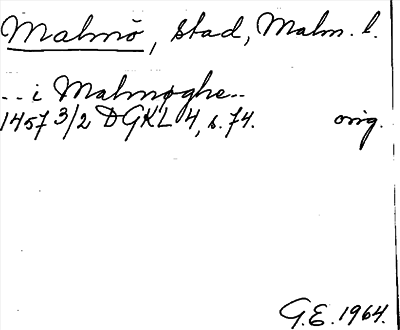 Malmö, stad, Malm. l.
.. i Malmøghe..
1457 3/2 DGKL 4, s. 74. orig.
G.E. 1964.